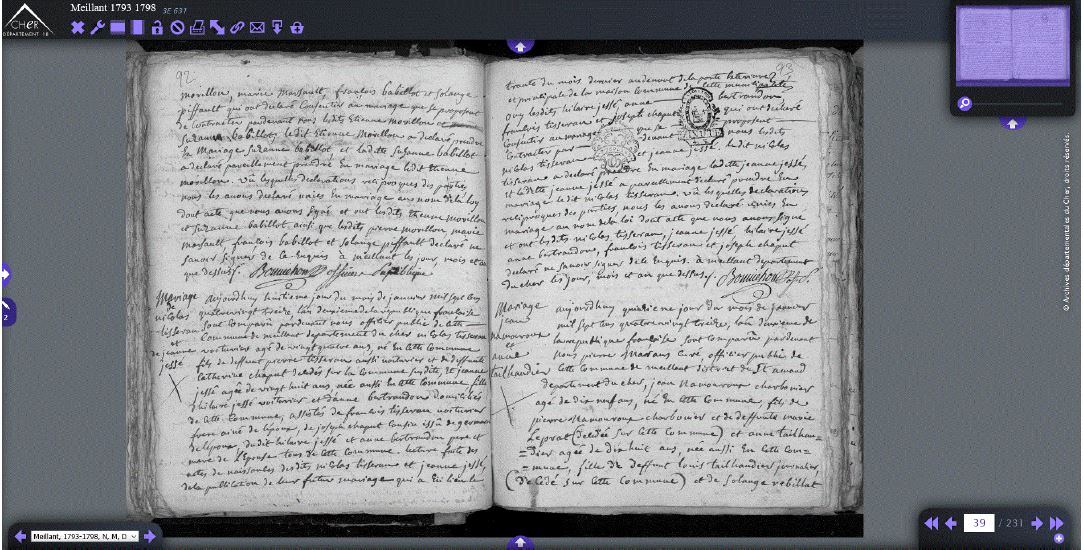 Meillant 1793 1798
3E 631
CHER
DÉPARTEMENT 18
92
morillon, marie morsault, françois babillot et solange
piffault qui ont déclaré Consentir au mariage que se proposent
de contracter pardevant nous lesdits Etienne morillon et
Suzanne babillot. ledit Etienne Morillon a déclaré prendre
En Mariage Suzanne babillot et laditte Suzanne babillot
a déclaré pareillement prendre En mariage ledit Etienne
morillon. vû lesquelles déclarations réciproques des parties
nous les avons déclaré unies En mariage au nom de la loy
dont acte que nous avons signé et ont lesdits Etienne morillon
et Suzanne babillot, ainsi que lesdits pierre morillon, marie
morsault, françois babillot et Solange piffault déclaré ne
savoir signer de ce Enquis à meillant les jour, mois et an
que dessus. Bonnichon officier Publique
Mariage
nicolas
tisseran
et
de jeanne
jessé
aujourdhuy huitieme jour du mois de janvier mil sept cent
quatrevingt treize, l'an deuxieme de la république francaise
sont Comparû pardevant nous officier public de cette
Commune de meillant departement du cher nicolas tisseran
voiturier agé de vingt quatre ans, né En cette Commune
fils de deffunt pierre tisseran aussi voiturier et de deffunte
Catherine chaput décédés sur la Commune susditte, et jeanne
jessé agée de vingt huit ans, née aussi En cette commune, fille
d'hilaire jessé voiturier et d'anne bertrandon domiciliés
de cette Commune, assistés de francois tisseran voiturier
frere ainé de l'époux, de joseph chaput Cousin issû de germain
de l'époux, dudit hilaire jessé et anne bertrandon pere et
mere de l'Epouse tous de cette Commune. lecture faite des
actes de naissances desdits nicolas tisseran et jeanne jessé,
de la publication de leur futur mariage qui a Eû lieu le
93
trente du mois dernier audevant de la porte Exterieure
et principale de la maison Commune de cette municipalité
ouy lesdits hilaire jessé, anne bertrandon
francois tisseran et joseph chaput qui ont déclaré
Consentir au mariage que se proposent
Contracter par devant nous lesdits
nicolas tisseran et jeanne jessé. ledit nicolas
tisseran a déclaré prendre En mariage laditte jeanne jessé,
et laditte jeanne jessé a pareillement déclaré prendre En
mariage ledit nicolas tisseran. vû lesquelles déclarations
réciproques des parties nous les avons déclaré unies En
mariage au nom de la loi dont acte que nous avons signé
et ont lesdits nicolas tisseran, jeanne jessé, hilaire jessé
anne bertrandon, francois tisseran et joseph chaput
déclaré ne savoir signer de ce Enquis. à meillant departement
du cher les jour, mois et an que dessus. Bonnichon
Mariage
jean
namouroux
et
anne
tailhandier
aujourdhuy quinzieme jour du mois de janvier
mil sept cent quatrevingt treize, l'an deuxieme de
la republique francaise sont Comparûs pardevant
Nous pierre Curé officier public de
cette Commune de meillant district de St amand
departement du cher, jean Namouroux charbonier
agé de dix neuf ans, né En cette Commune, fils de
pierre Namouroux charbonier et de deffunte marie
Leprat (decédée sur cette Commune) et anne tailhan=
=dier agée de dix huit ans, née aussi En cette Com=
=mune, fille de deffunt louis tailhandier journalier,
(decédé sur cette Commune) et de Solange rebillat
© Archives départementales du Cher, droits réservés.
2
Meillant, 1793-1798, N, M, D
39 / 231